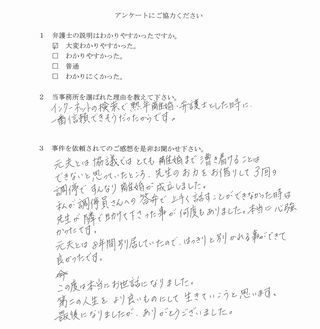 アンケートにご協力ください
1 弁護士の説明はわかりやすかったですか。
☑ 大変わかりやすかった
□ わかりやすかった
□ 普通
□ わかりにくかった。
2 当事務所を選ばれた理由を教えて下さい。
インターネットの検索で熟年離婚・弁護士とした時に、
一番信頼できそうだったからです。
3 事件を依頼されてのご感想を是非お聞かせ下さい。
元夫とは協議ではとても離婚まで漕ぎ着けることは
できないと思っていたところ、先生のお力をお借りして3回の
調停ですんなり離婚が成立しました。
私が調停員さんへの答弁で上手く話すことができなかった時は
先生が隣で助けて下さった事が何度もありました。本当に心強
かったです。
元夫とは8年間別居していたので、はっきりと別かれる事ができて
良かったです。
この度は本当にお世話になりました。
第二の人生をより良いものにして生きていこうと思います。
最後になりましたが、ありがとうございました。